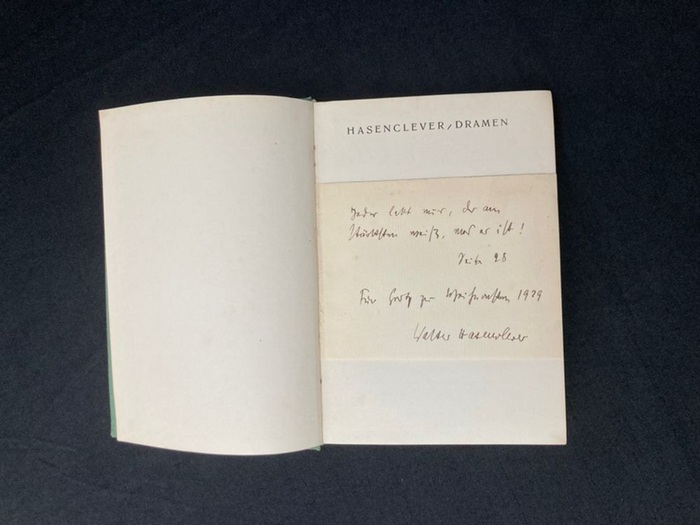 HASENCLEVER, DRAMEN
Jeder lebt nur, der am
stärksten weiß, was er ist!
Seite 28
Für zu Weihnachten 1929
Walter Hasenclever